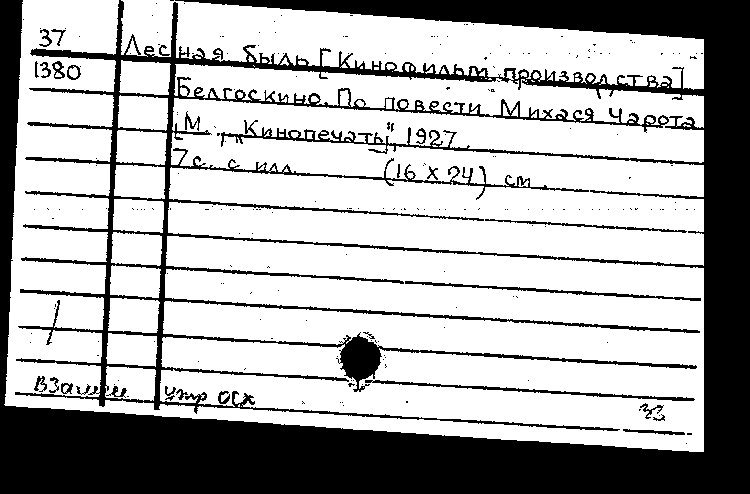 37 Лесная быль [Кинофильм производства]
1380 Белгоскино. По повести Михася Чарота
[М., „Кинопечать]", 1927.
7 с. с илл. (16 X 24) см.
утр ОСХ
33